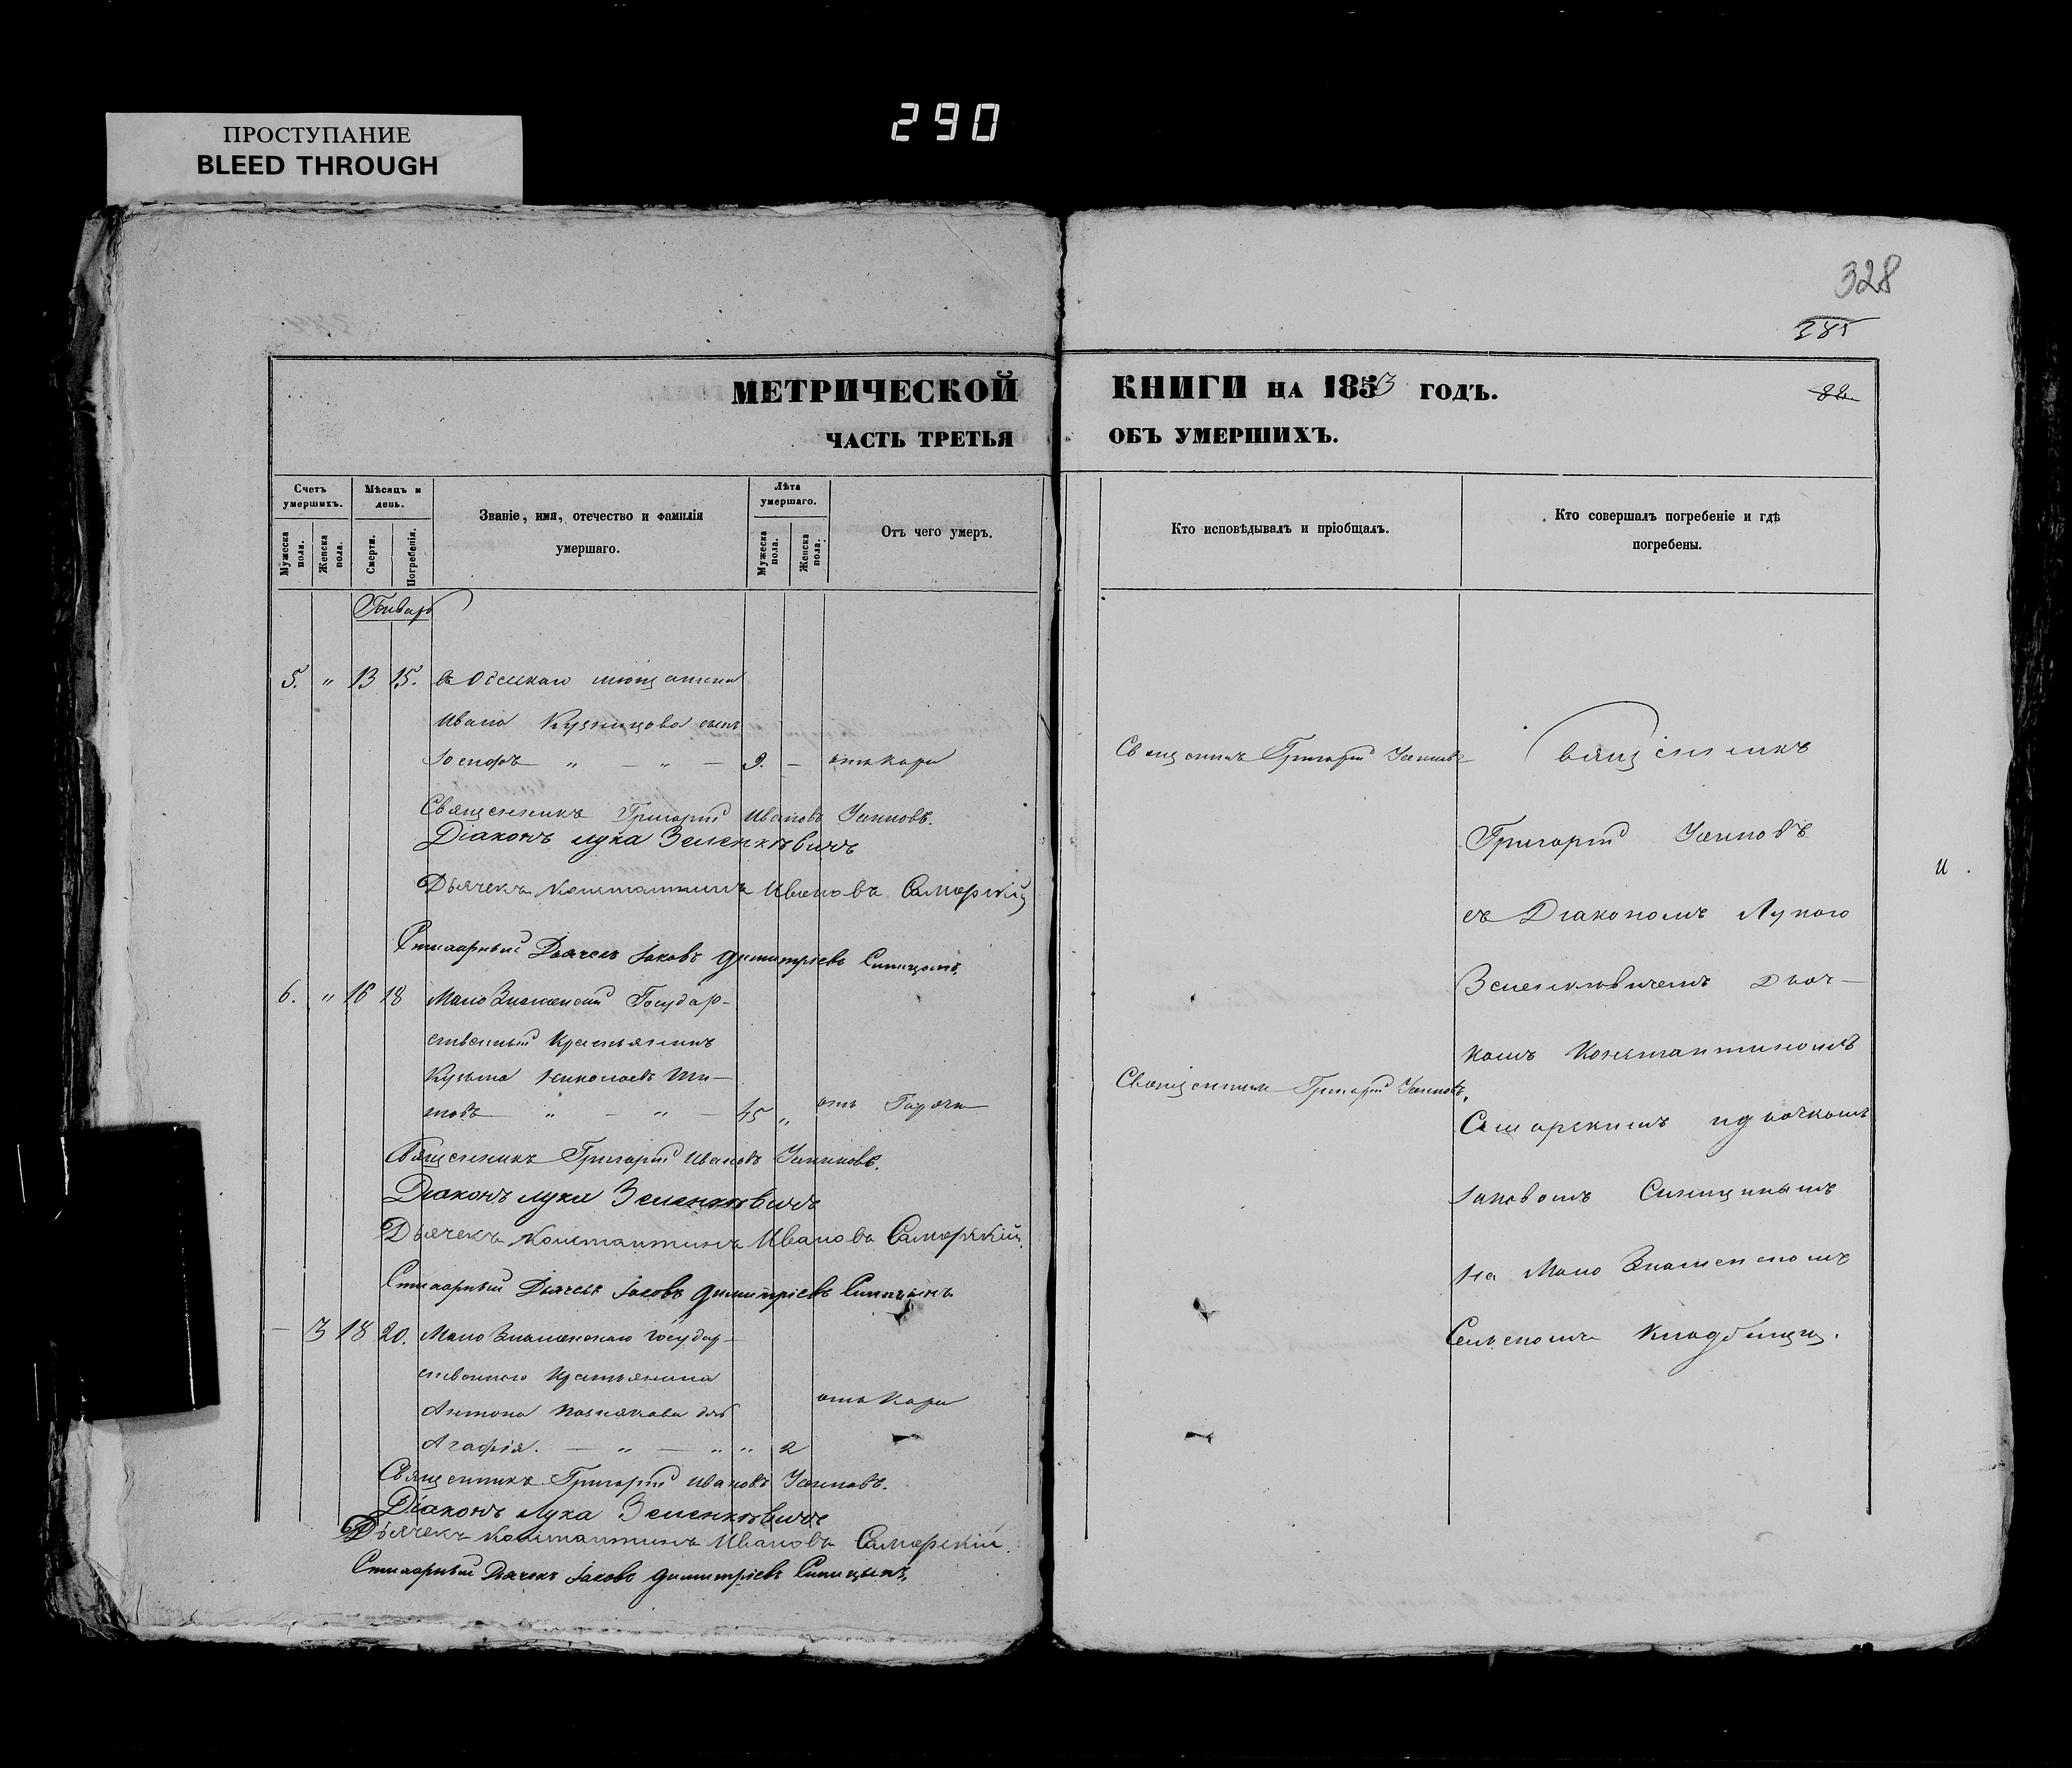 290
ПРОСТУПАНИЕ
BLEED THROUGH
328
285
МЕТРИЧЕСКОЙ КНИГИ НА 1853 ГОДЪ.
88.
ЧАСТЬ ТРЕТЬЯ ОБЪ УМЕРШИХЪ.
Счетъ умершихъ.
Мужеска пола.
Женска пола.
Мѣсяцъ и день.
Смерти.
Погребенія.
Званіе, имя, отечество и фамилія умершаго.
Лѣта умершаго.
Мужеска пола.
Женска пола.
Отъ чего умеръ.
Кто исповѣдывалъ и пріобщалъ.
Кто совершалъ погребеніе и гдѣ погребены.
Январь
5. " 13 15. Одесскаго мѣщанина
Ивана Кузницова сынъ
Іосифъ " — " — 9. — отъ Кори
Священникъ Григорій Ивановъ
Діаконъ Лука Зеленкѣвичъ
Дьячекъ Константинъ Ивановъ Самарскій
Стихарный Дьячекъ Іаковъ Димитріевъ Синицынъ.
6. " 16 18 Мало Знаменскій Государ-
ственный Крестьянинъ
Кузьма Николаевъ Ши-
" — " — 45 " отъ Горячки
Священникъ Григорій Ивановъ
Діаконъ Лука Зеленкѣвичъ
Дьячекъ Константинъ Ивановъ Самарскій.
Стихарный Дьячекъ Іаковъ Димитріевъ Синицынъ
— 3 18 20. Мало Знаменскаго Государ-
ственнаго Крестьянина
Антона дочь
отъ Кори
Агафія. — " — " " 2
Священникъ Григорій Ивановъ
Діаконъ Лука Зеленкѣвичъ
Дьячекъ Константинъ Ивановъ Самарскій.
Стихарный Дьячекъ Іаковъ Димитріевъ Синицынъ
Священникъ Григорій
Священникъ Григорій
Священникъ
Григорій
съ Діакономъ Лукою
Зеленкѣвичемъ Дьяч-
комъ Константиномъ
Самарскимъ и дьячкомъ
Іаковомъ Синицынымъ
на Мало Знаменскомъ
Сельскомъ Кладбищѣ.
и.